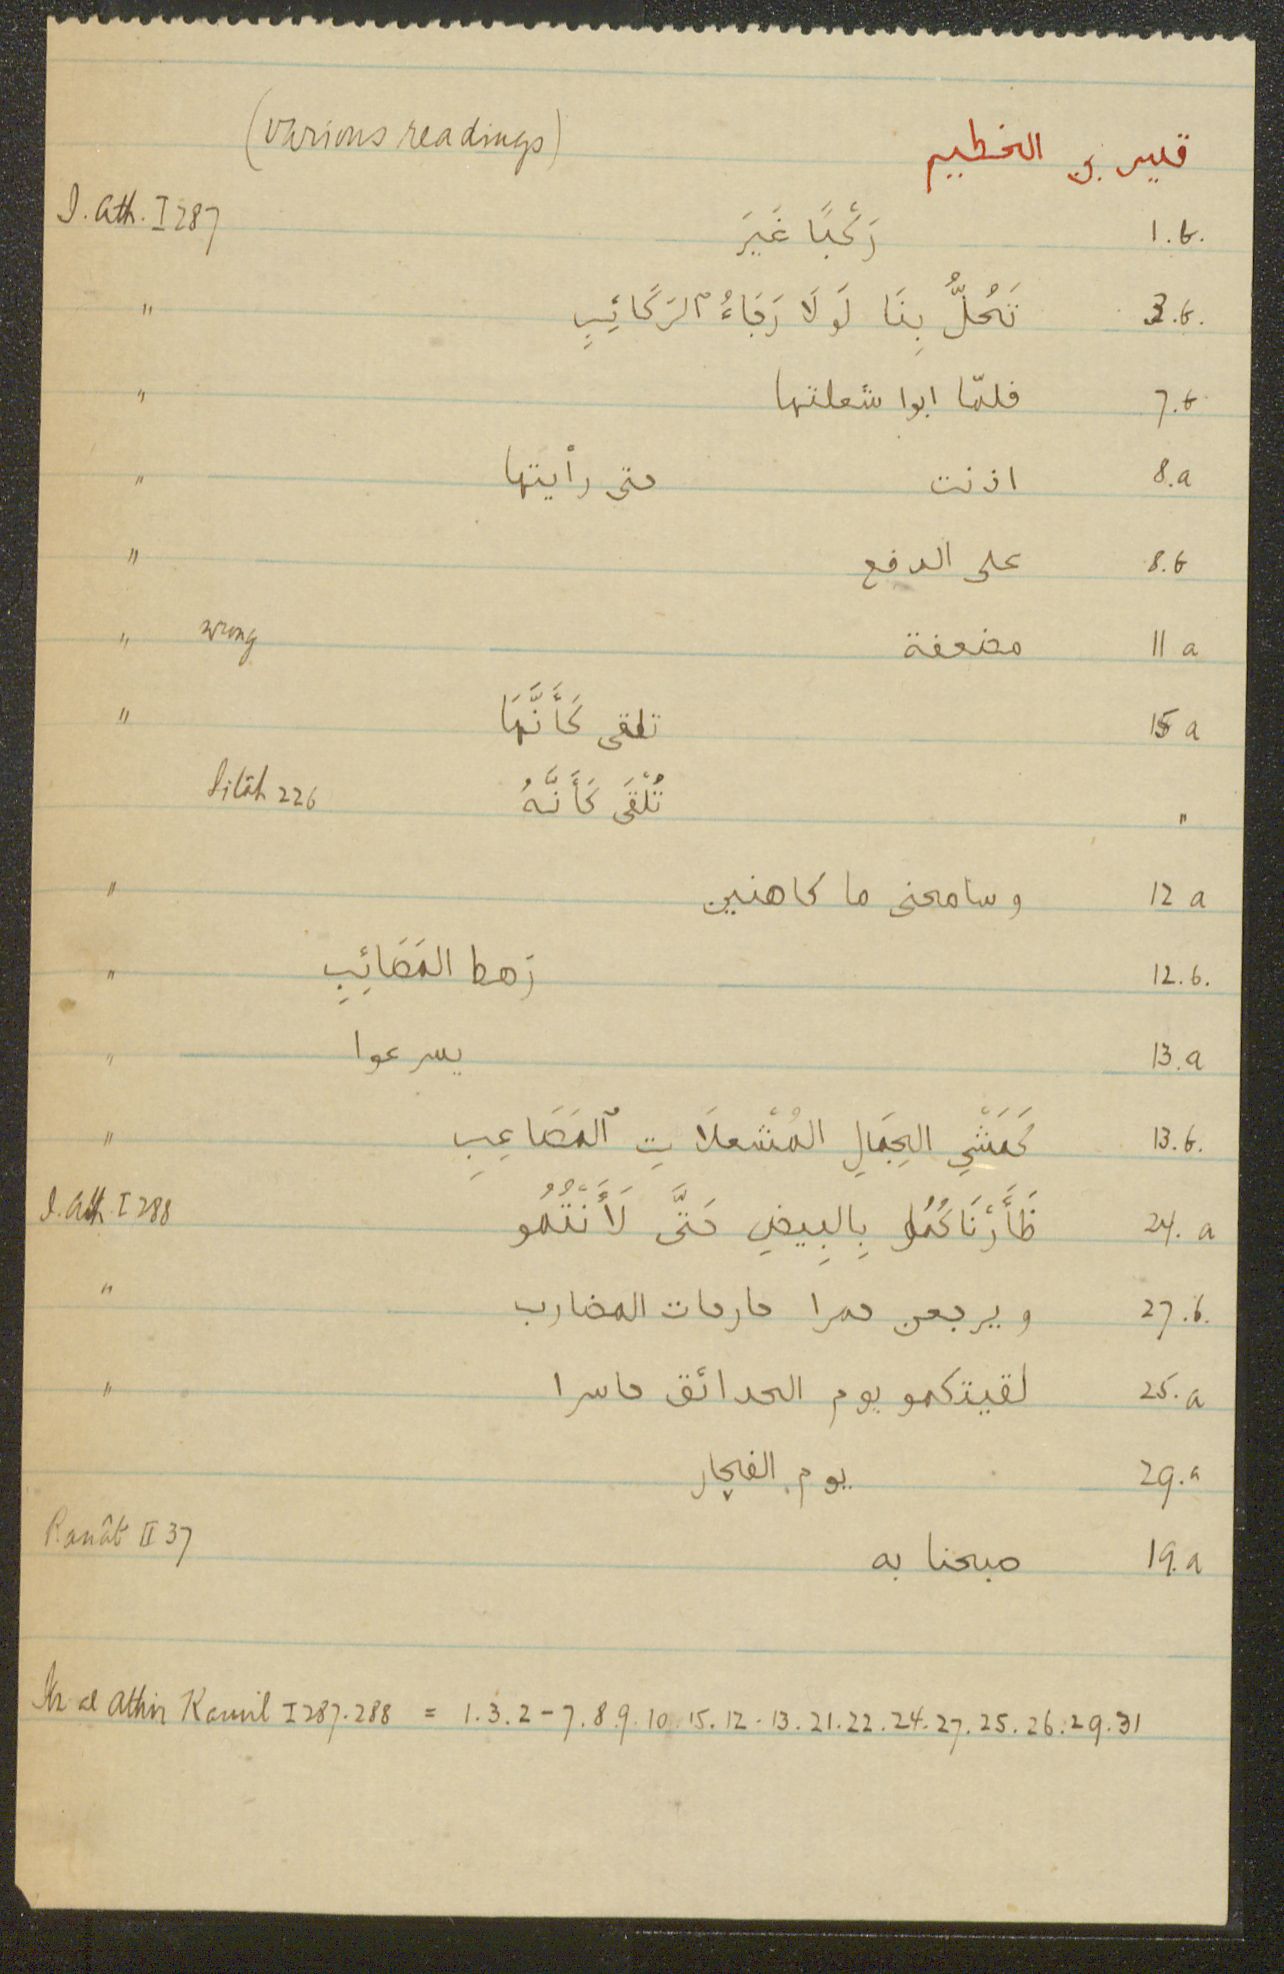 (various readings) قيس بن الخطيم
I. Ath. I 287 رَكْبًا غَيرَ 1.b.
" تَحُلُّ بِنَا لَولَا رَجَاءُ ٱلرَكَائِبِ 3.b.
" فلمّا ابوا شعلتها 7.b
" اذنت حتى رأيتها 8.a
" على الدفع 8.b
" wrong مضعفة 11 a
" تلقى كَأَنَّهَا 15 a
226 تُلْقَى كَأَنَّهُ "
" وسامحنى ما كاهنين 12 a
" رهط القَصَائِبِ 12.b.
" يسرعوا 13.a
" كَمَشْيِ الجِمَالِ المُشْعلَاتِ ٱلمَصَاعِبِ 13.b.
I. Ath. I 288 ظَأَرْنَاكُمُ بِالبِيضِ حَتَّى لَأَنْتُمُو 24. a
" ويرجعن حمرا جارحات المضارب 27.b.
" لقيتكمو يوم الحدائق حاسرا 25.a
يوم الفجار 29.a
II 37 صبحنا به 19.a
Ibn al Athir Kamil I 287.288 = 1.3.2-7.8.9.10.15.12.13.21.22.24.27.25.26.29.31